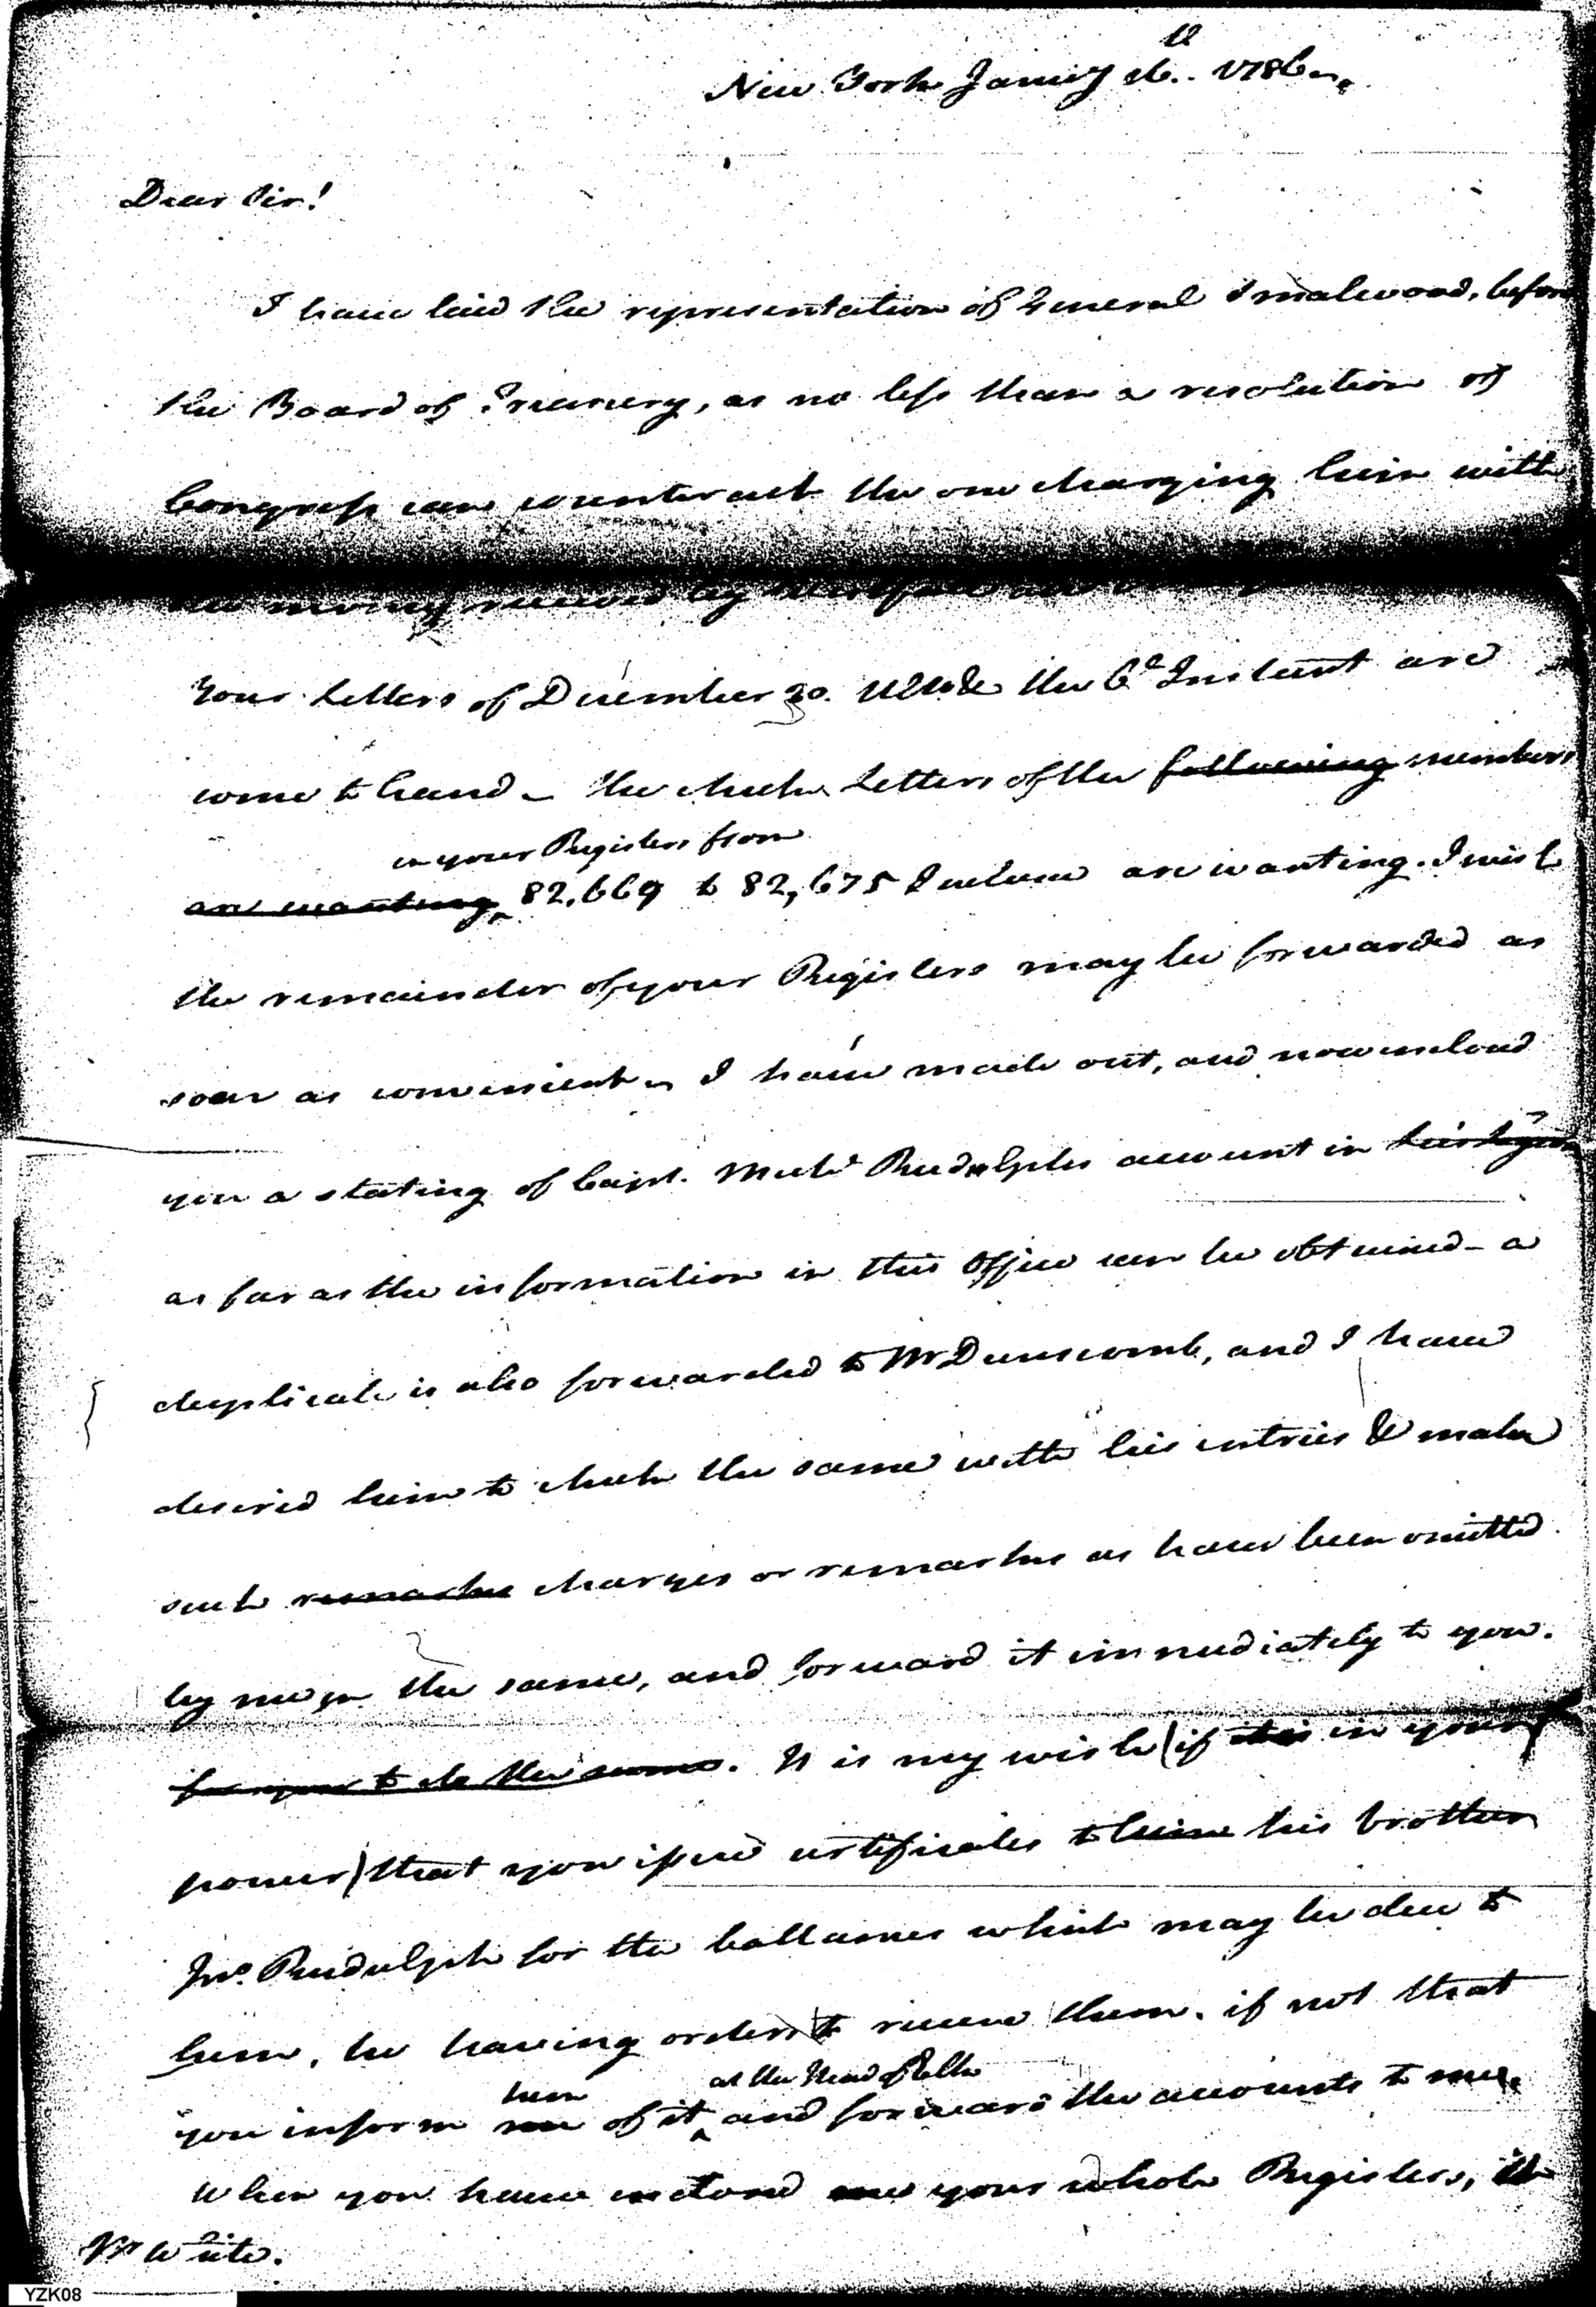 New York Janury 16th. 1786.
Dear Sir!
I have laid the representation of General Smalwood, before
the Board of Treasury, as no less than a resolution of
Congress can counteract the one charging him with
money received by
Your Letters of December 30. Ulto & the 6th Instant are
come to hand - the check Letters of the following numbers
in your Registers from
are wanting 82,669 to 82,675 Inclusive are wanting. I wish
the remainder of your Registers may be forwarded as
soon as convenient. I have made out, and now inclosed
you a stating of Capt. Michl Rudulphs account in
as far as the information in this Office can be obtained - a
duplicate is also forwarded to Mr Dunscomb, and I have
desired him to check the same with his entries & make
such remarks charges or remarks as have been omitted
by me in the same, and forward it immediately to you.
for you to do the same. It is my wish (if it is in your
power) that you issue certificates to him his brother
Jno. Rudulph for the ballances which may be due to
him, he having orders to receive them. if not that
him at the Head of Elk
you inform me of it and forward the accounts to me.
When you have inclosed me your whole Registers, it
Mr White.
YZK08